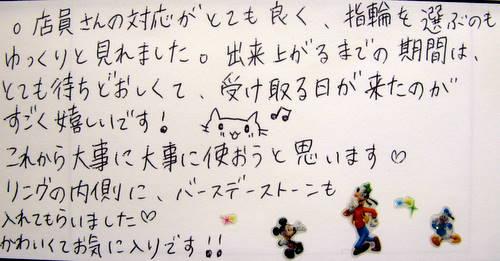 。店員さんの対応がとても良く、指輪を選ぶのも
ゆっくりと見れました。出来上がるまでの期間は、
とても待ちどおしくて、受け取る日が来たのが
すごく嬉しいです!♫
これから大事に大事に使おうと思います♡
リングの内側に、バースデーストーンも
入れてもらいました♡
かわいくてお気に入りです!!